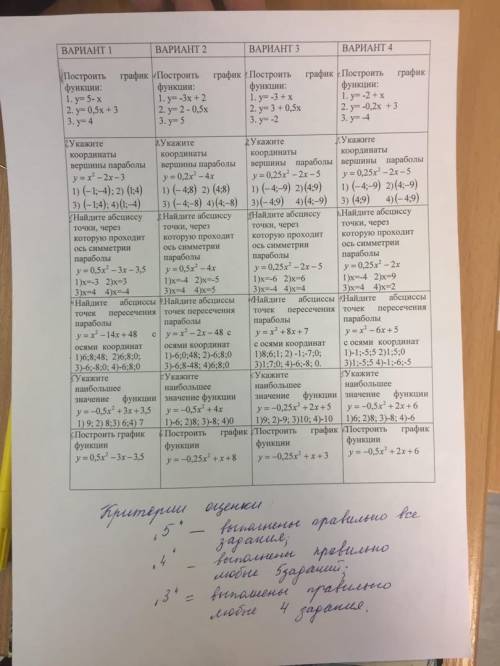 ВАРИАНТ 1
Построить график
функции:
1. y= 5- x
2. y= 0,5x + 3
3. y= 4
Укажите
координаты
вершины параболы
y = x² – 2x – 3
1) (–1;–4); 2) (1;4)
3) (–1;4); 4)(1;–4)
Найдите абсциссу
точки, через
которую проходит
ось симметрии
параболы
y = 0,5x² – 3x – 3,5
1)x=-3 2)x=3
3)x=4 4)x=-4
Найдите абсциссы
точек пересечения
параболы
y = x² – 14x + 48 с
осями координат
1)6;8;48; 2)6;8;0;
3)-6;-8;0; 4)-6;8;0
Укажите
наибольшее
значение функции
y = –0,5x² + 3x + 3,5
1) 9; 2) 8;3) 6;4) 7
Построить график
функции
y = 0,5x² – 3x – 3,5
ВАРИАНТ 2
Построить график
функции:
1. y= -3x + 2
2. y= 2 - 0,5x
3. y= 5
Укажите
координаты
вершины параболы
y = 0,2x² – 4x
1) (–4;8) 2) (4;8)
3) (–4;–8) 4) (4;–8)
Найдите абсциссу
точки, через
которую проходит
ось симметрии
параболы
y = 0,5x² – 4x
1)x=-4 2)x=-5
3)x=4 4)x=5
Найдите абсциссы
точек пересечения
параболы
y = x² – 2x – 48 с
осями координат
1)-6;0;48; 2)-6;8;0
3)-6;8-48; 4)6;8;0
Укажите
наибольшее
значение функции
y = –0,5x² + 4x
1)-6; 2)8; 3)-8; 4)0
Построить график
функции
y = –0,25x² + x + 8
ВАРИАНТ 3
Построить график
функции:
1. y= -3 + x
2. y= 3 + 0,5x
3. y= -2
Укажите
координаты
вершины параболы
y = 0,25x² – 2x – 5
1) (–4;–9) 2) (4;9)
3)(–4;9) 4) (4;–9)
Найдите абсциссу
точки, через
которую проходит
ось симметрии
параболы
y = 0,25x² – 2x – 5
1)x=-6 2)x=6
3)x=-4 4)x=4
Найдите абсциссы
точек пересечения
параболы
y = x² + 8x + 7
с осями координат
1)8;6;1; 2) -1;-7;0;
3)1;7;0; 4)-6;-8; 0.
Укажите
наибольшее
значение функции
y = –0,25x² + 2x + 5
1)9; 2)-9; 3)10; 4)-10
Построить график
функции
y = –0,25x² + x + 3
ВАРИАНТ 4
Построить график
функции:
1. y= -2 + x
2. y= -0,2x + 3
3. y= -4
Укажите
координаты
вершины параболы
y = 0,25x² – 2x – 5
1) (–4;–9) 2) (4;–9)
3) (4;9) 4) (–4;9)
Найдите абсциссу
точки, через
которую проходит
ось симметрии
параболы
y = 0,25x² – 2x
1)x=-4 2)x=9
3)x=4 4)x=2
Найдите абсциссы
точек пересечения
параболы
y = x² – 6x + 5
с осями координат
1)-1;-5;5 2)1;5;0
3)1;-5;5 4)-1;-6;-5
Укажите
наибольшее
значение функции
y = –0,5x² + 2x + 6
1)6; 2)8; 3)-8; 4)-6
Построить график
функции
y = –0,5x² + 2x + 6
Критерии оценки
„5“ – выполнены правильно все
задания;
„4“ – выполнены правильно
любые 5заданий;
„3“ = выполнены правильно
любые 4 задания.